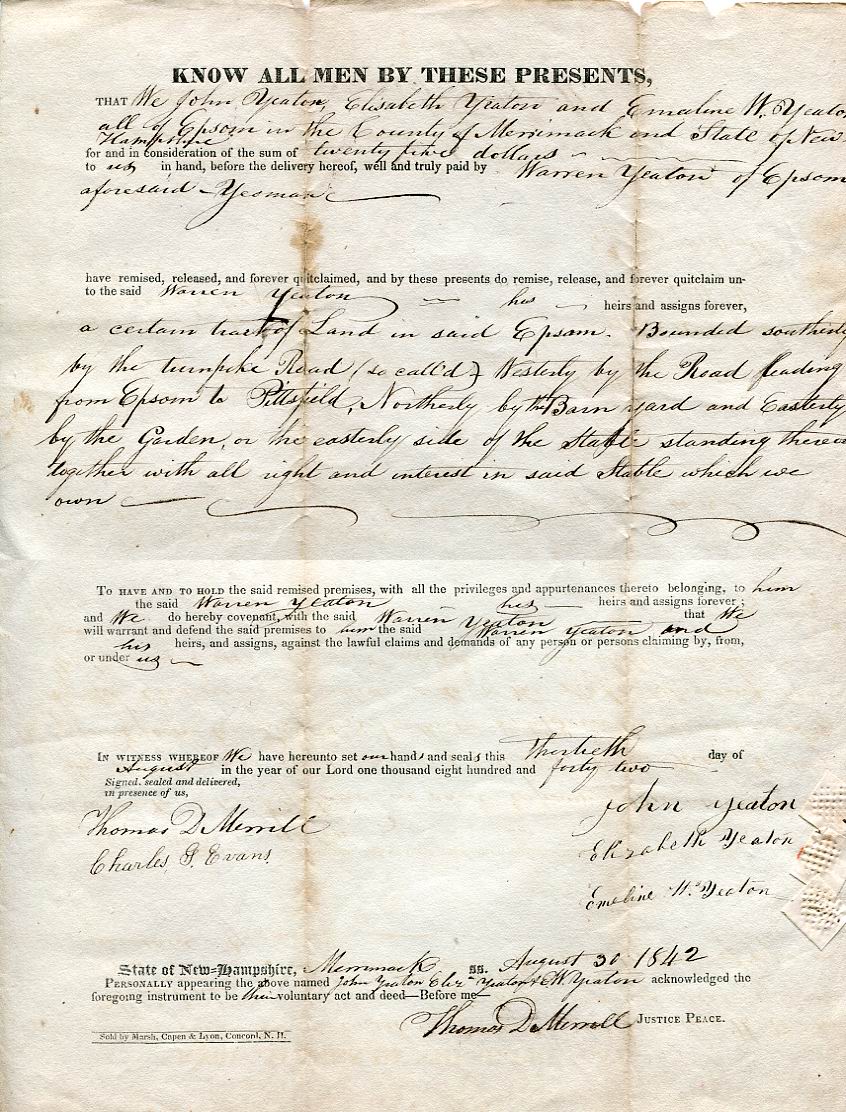 KNOW ALL MEN BY THESE PRESENTS,
THAT We John Yeaton, Elisabeth Yeaton and Emaline W. Yeaton
all of Epsom in the County of Merrimack and State of New-
Hampshire
for and in consideration of the sum of twenty five dollars
to us in hand, before the delivery hereof, well and truly paid by Warren Yeaton of Epsom
aforesaid - Yeoman
have remised, released, and forever quitclaimed, and by these presents do remise, release, and forever quitclaim un-
to the said Warren Yeaton his heirs and assigns forever,
a certain tract of Land in said Epsom. Bounded southerly
by the turnpike Road (so call'd) Westerly by the Road leading
from Epsom to Pittsfield, Northerly by the Barn yard and Easterly
by the Garden, or the easterly side of the Stable standing thereon
together with all right and interest in said Stable which we
own
TO HAVE AND TO HOLD the said remised premises, with all the privileges and appurtenances thereto belonging, to him
the said Warren Yeaton his heirs and assigns forever;
and We do hereby covenant, with the said Warren Yeaton that We
will warrant and defend the said premises to him the said Warren Yeaton and
his heirs, and assigns, against the lawful claims and demands of any person or persons claiming by, from,
or under us
IN WITNESS WHEREOF We have hereunto set our hands and seals this Thirtieth day of
August in the year of our Lord one thousand eight hundred and forty two
Signed, sealed and delivered,
in presence of us,
Thomas D Merrill
Charles G. Evans.
John Yeaton
Elizabeth Yeaton
Emeline W. Yeaton
State of New-Hampshire, Merrimack ss. August 30 1842
PERSONALLY appearing the above named John Yeaton Eliz Yeaton & E W. Yeaton acknowledged the
foregoing instrument to be their voluntary act and deed—Before me—
Thomas D Merrill JUSTICE PEACE.
Sold by Marsh, Capen & Lyon, Concord, N. H.